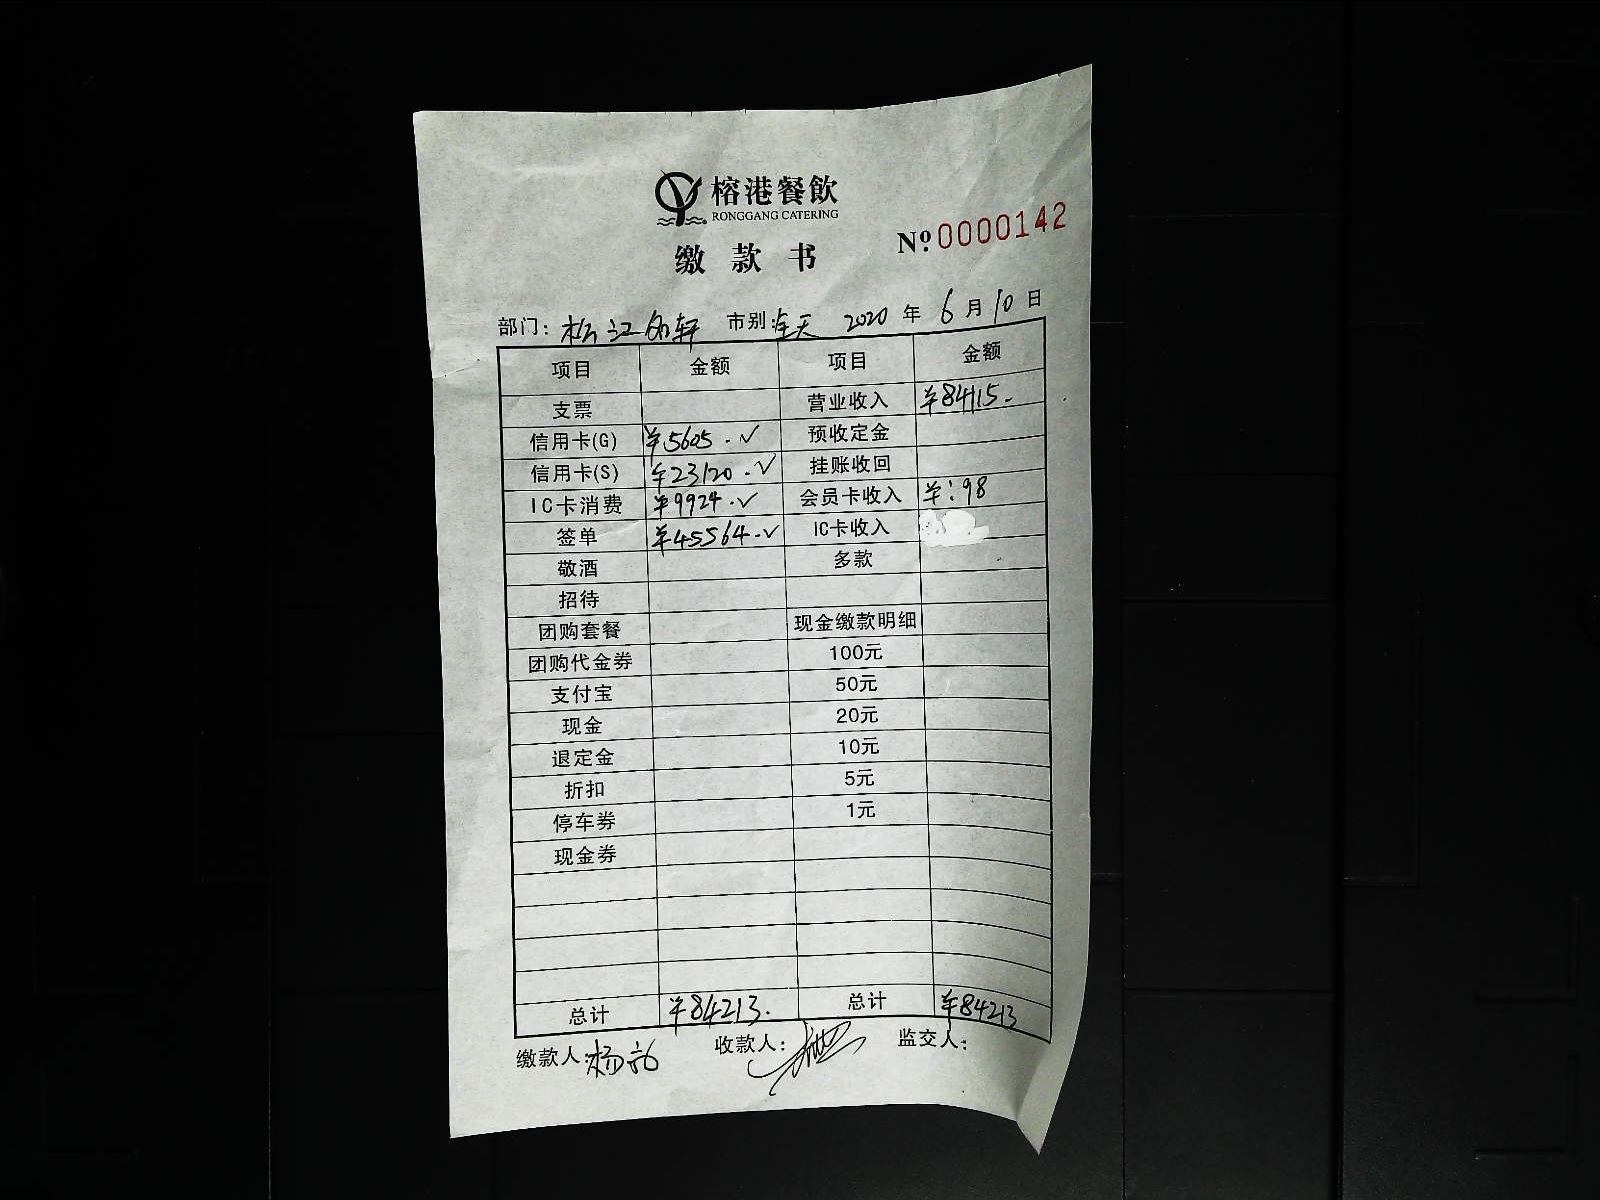 榕港餐飲
RONGGANG CATERING
缴款书 Nº 0000142
部门: 松江名轩 市别: 全天 2020 年 6 月 10 日
项目 金额 项目 金额
支票 营业收入 ¥84115.-
信用卡(G) ¥5605.✓ 预收定金
信用卡(S) ¥23120.✓ 挂账收回
IC卡消费 ¥9924.✓ 会员卡收入 ¥:98
签单 ¥45564.✓ IC卡收入
敬酒 多款
招待
团购套餐 现金缴款明细
团购代金券 100元
支付宝 50元
现金 20元
退定金 10元
折扣 5元
停车券 1元
现金券
总计 ¥84213. 总计 ¥84213
缴款人: 杨 收款人: 监交人: